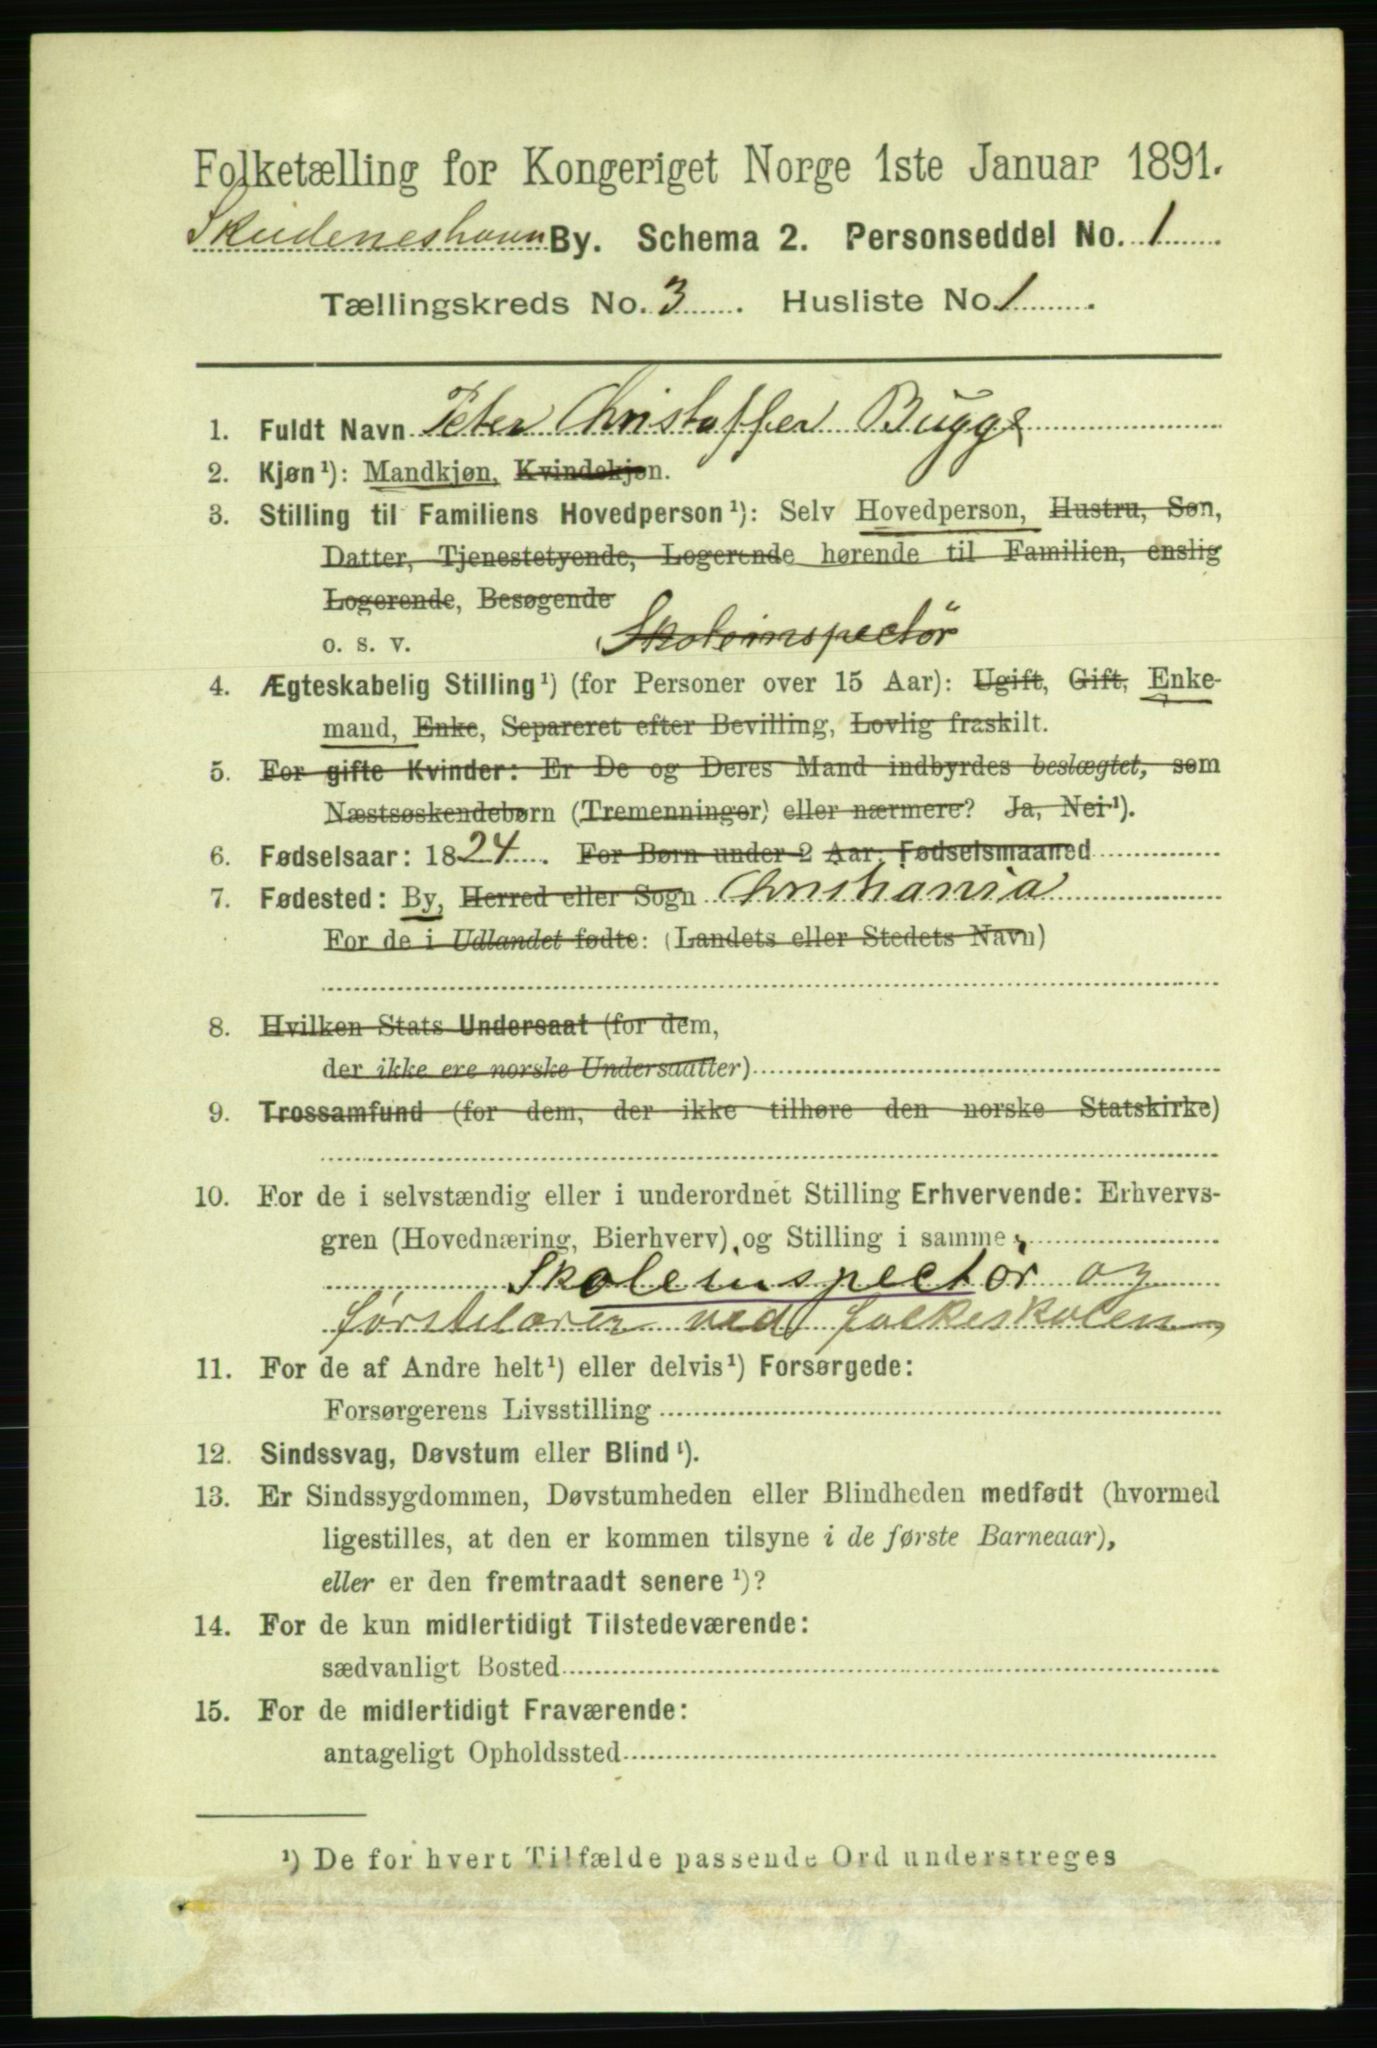 Folketælling for Kongeriget Norge 1ste Januar 1891.
Skudeneshavn By. Schema 2. Personseddel No. 1
Tællingskreds No. 3. Husliste No. 1.
1. Fuldt Navn Peter Christoffer Bugge
2. Kjøn¹): Mandkjøn, Kvindekjøn.
3. Stilling til Familiens Hovedperson¹): Selv Hovedperson, Hustru, Søn,
Datter, Tjenestetyende, Logerende hørende til Familien, enslig
Logerende, Besøgende
o. s. v. Skoleinspectör
4. Ægteskabelig Stilling¹) (for Personer over 15 Aar): Ugift, Gift, Enke-
mand, Enke, Separeret efter Bevilling, Lovlig fraskilt.
5. For gifte Kvinder: Er De og Deres Mand indbyrdes beslægtet, som
Næstsøskendebørn (Tremenninger) eller nærmere? Ja, Nei¹).
6. Fødselsaar: 1824. For Børn under 2 Aar: Fødselsmaaned
7. Fødested: By, Herred eller Sogn Christiania
For de i Udlandet fødte: (Landets eller Stedets Navn)
8. Hvilken Stats Undersaat (for dem,
der ikke ere norske Undersaatter)
9. Trossamfund (for dem, der ikke tilhøre den norske Statskirke)
10. For de i selvstændig eller i underordnet Stilling Erhvervende: Erhvervs-
gren (Hovednæring, Bierhverv) og Stilling i samme
Skoleinspectör og
førstelærer ved folkeskolen
11. For de af Andre helt¹) eller delvis¹) Forsørgede:
Forsørgerens Livsstilling
12. Sindssvag, Døvstum eller Blind¹).
13. Er Sindssygdommen, Døvstumheden eller Blindheden medfødt (hvormed
ligestilles, at den er kommen tilsyne i de første Barneaar),
eller er den fremtraadt senere¹)?
14. For de kun midlertidigt Tilstedeværende:
sædvanligt Bosted
15. For de midlertidigt Fraværende:
antageligt Opholdssted
¹) De for hvert Tilfælde passende Ord understreges